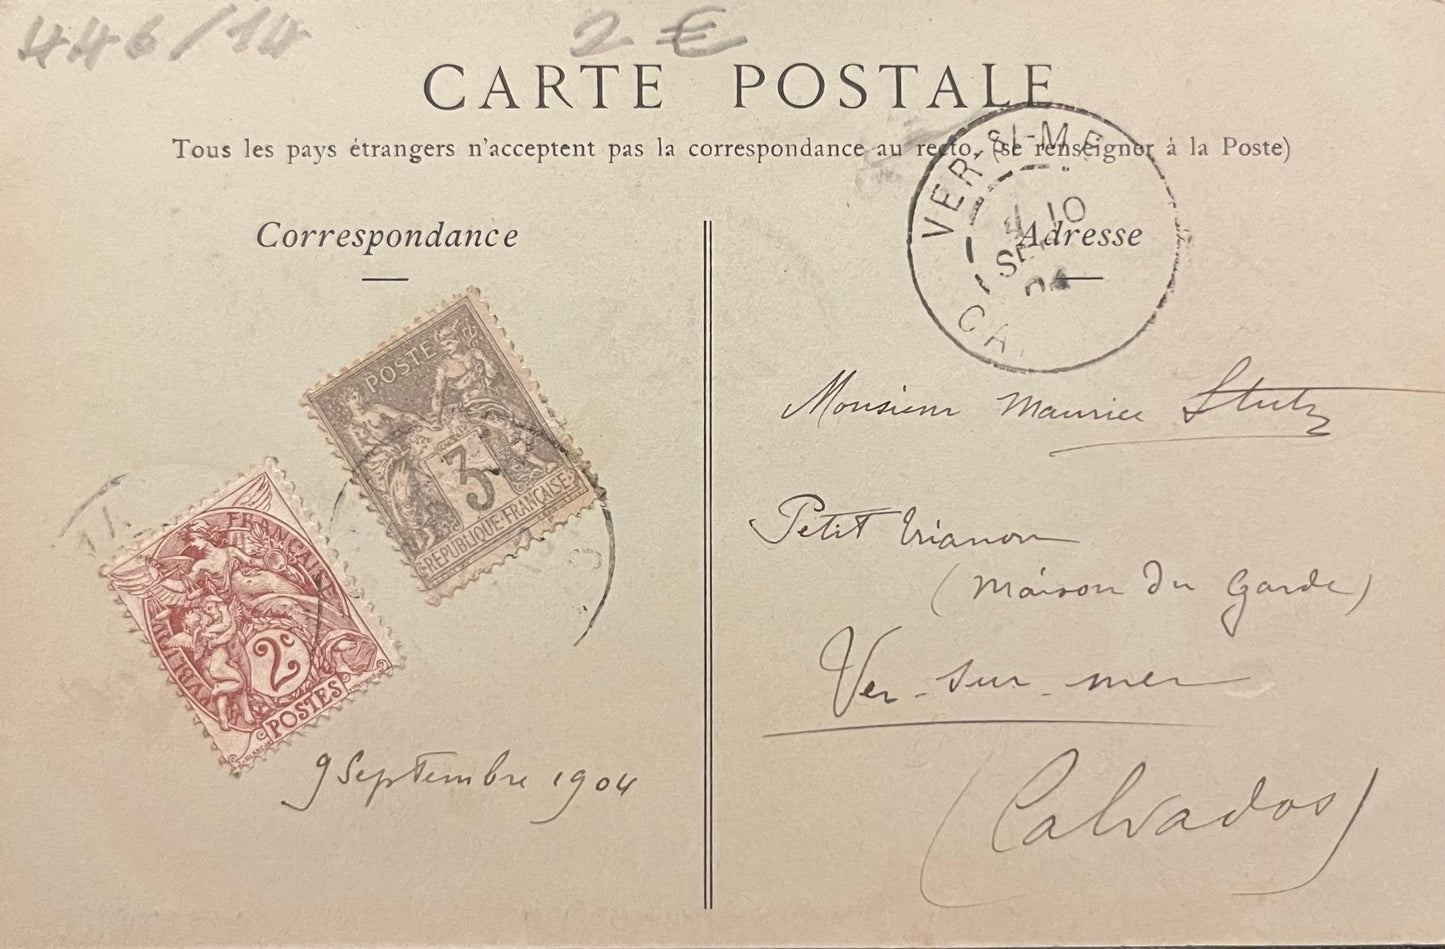 446/14
2 €
CARTE POSTALE
Tous les pays étrangers n'acceptent pas la correspondance au recto. (se renseigner à la Poste)
Correspondance
Adresse
VER-S-MER
10
SE
04
CA
POSTE
3
REPUBLIQUE FRANÇAISE
FRANÇAISE
2c
POSTES
9 Septembre 1904
Monsieur Maurice Stutz
Petit Trianon
(Maison du Garde)
Ver-sur-mer
(Calvados)